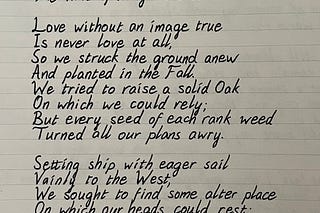 Love without an image true
Is never love at all,
So we struck the ground anew
And planted in the Fall.
We tried to raise a solid Oak
On which we could rely;
But every seed of each rank weed
Turned all our plans awry.
Setting ship with eager sail
Vainly to the West,
We sought to find some alter place
On which our heads could rest;